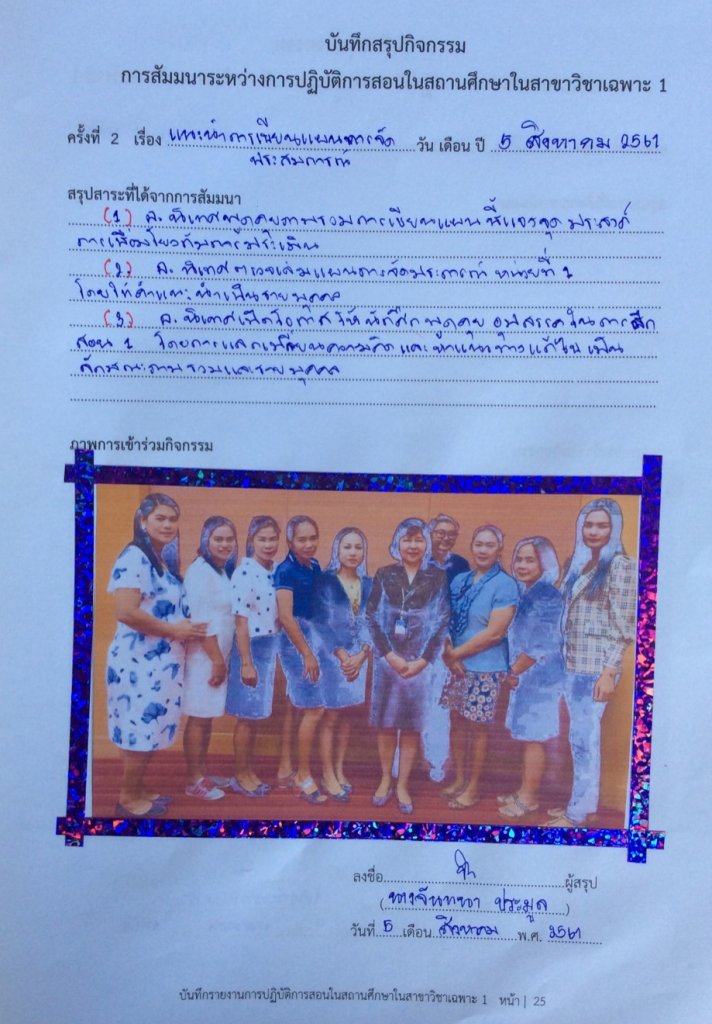 บันทึกสรุปกิจกรรม
การสัมมนาระหว่างการปฏิบัติการสอนในสถานศึกษาในสาขาวิชาเฉพาะ 1
ครั้งที่ 2 เรื่อง แนะนำการเขียนแผนการจัด วัน เดือน ปี 5 สิงหาคม 2561
ประสบการณ์
สรุปสาระที่ได้จากการสัมมนา
(1) อ. นิเทศพูดคุยภาพรวมการเขียนแผน ชี้แจงจุดประสงค์
การเชื่อมโยงกับการประเมิน
(2) อ. นิเทศตรวจเล่มแผนการจัดประการณ์ หน่วยที่ 1
โดยให้คำแนะนำเป็นรายบุคคล
(3) อ. นิเทศเปิดโอกาสให้นักศึกพูดคุย อุปสรรคในการฝึก
สอน 1 โดยการแลกเปลี่ยนความคิด และหาแนวทางแก้ไข เป็น
ลักษณะภาพรวมและรายบุคคล
ภาพการเข้าร่วมกิจกรรม
ลงชื่อ ผู้สรุป
(นางจันทนา ประมูล)
วันที่ 5 เดือน สิงหาคม พ.ศ. 2561
บันทึกรายงานการปฏิบัติการสอนในสถานศึกษาในสาขาวิชาเฉพาะ 1 หน้า | 25